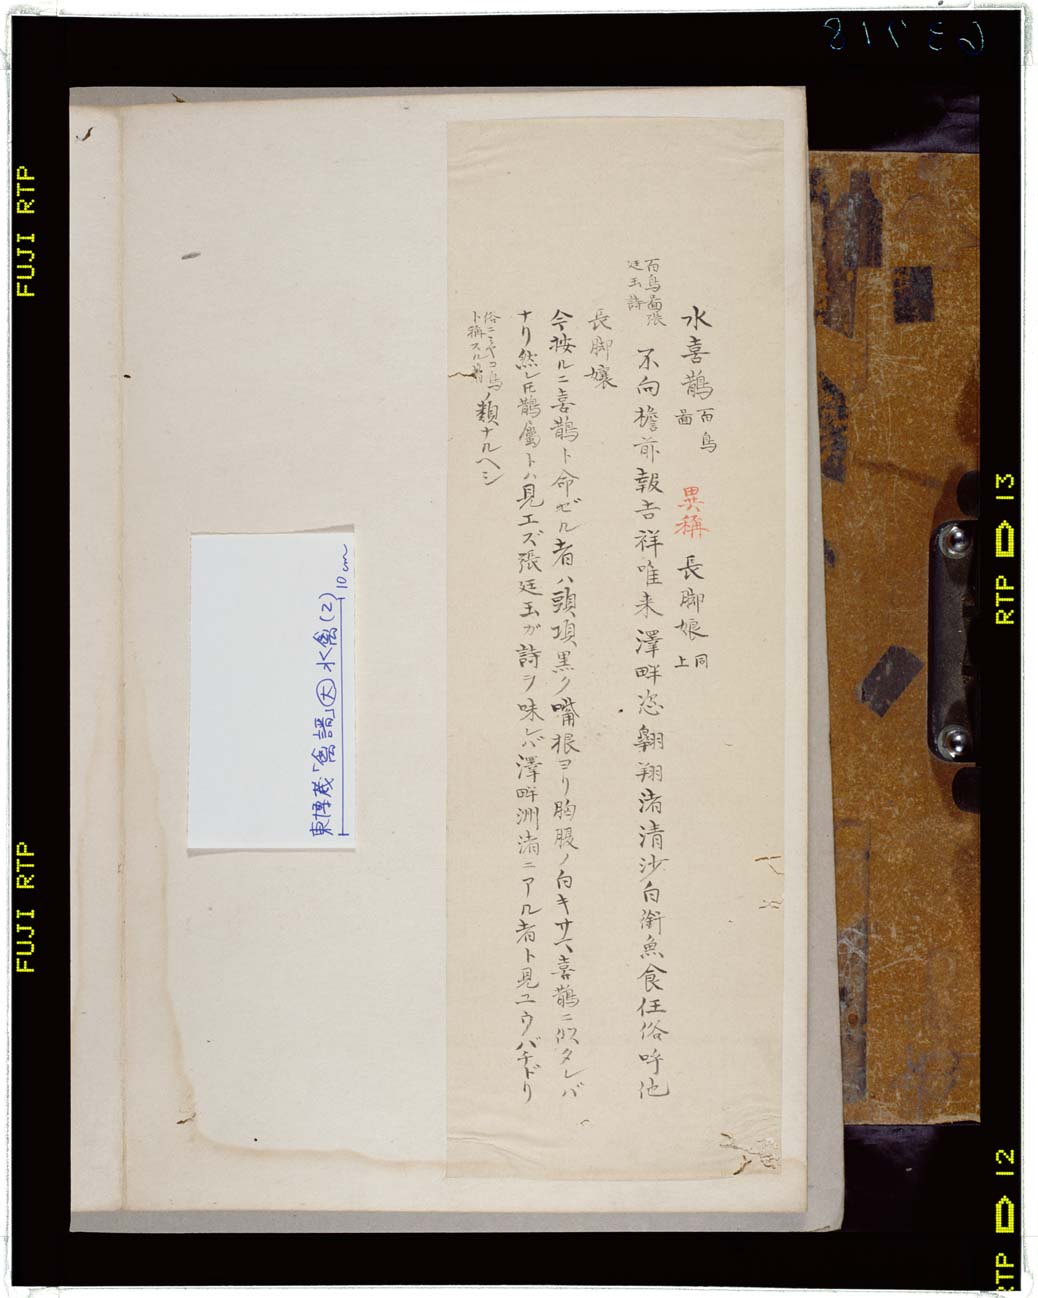 水喜鵲 百鳥啚 異稱 長脚娘 同上
百鳥啚張
廷玉詩
不向檐前報吉祥唯来澤畔恣翺翔渚清沙白銜魚食任俗呼他
長脚孃
今按ルニ喜鵲ト命ゼル者ハ頭項黒ク嘴根ヨリ胸腹ノ白キサヘ喜鵲ニ似タレバ
ナリ然レ𪜈鵲属トハ見エズ張廷玉ガ詩ヲ味レバ澤畔洲渚ニアル者ト見ユウバチドリ
俗ニミヤコ鳥
ト稱スル者ノ類ナルヘシ
東博蔵「禽譜」大 水禽(2)
10cm
FUJI RTP
FUJI RTP
RTP 13
RTP 12